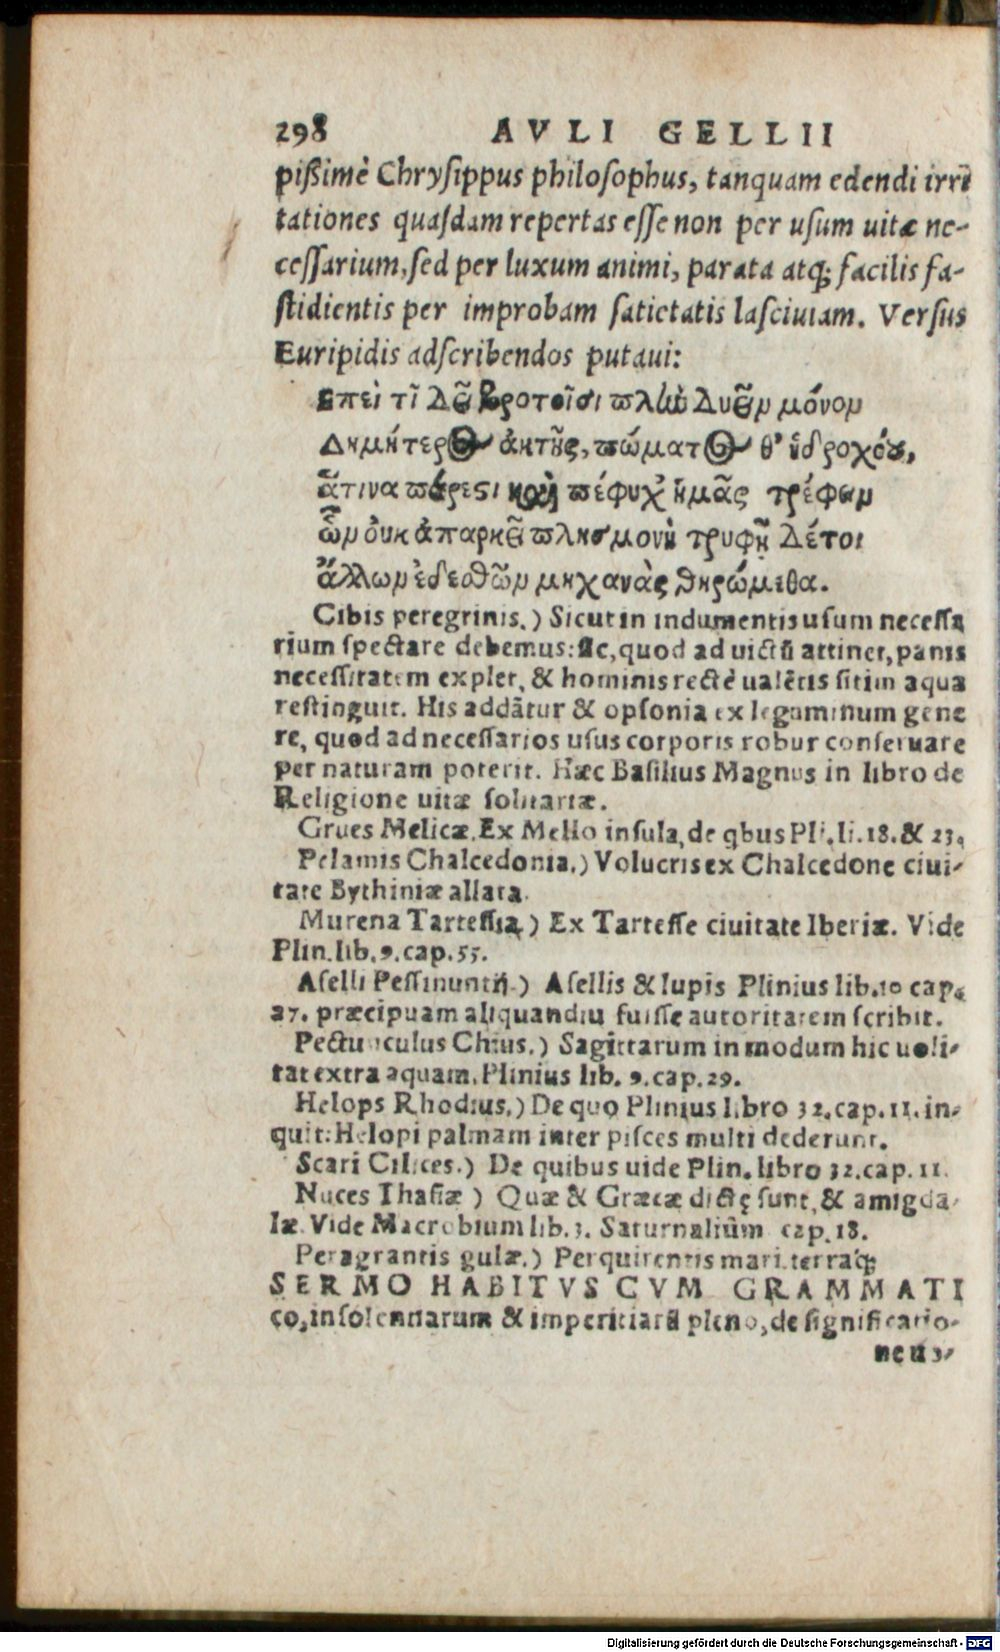 298 AVLI GELLII
pißimè Chrysippus philosophus, tanquam edendi irri
tationes quasdam repertas esse non per usum uitæ ne-
cessarium, sed per luxum animi, parata atq; facilis fa-
stidientis per improbam satietatis lasciuiam. Versus
Euripidis adscribendos putaui:
Επεὶ τί δεῖ βροτοῖσι πλὴν δυεῖν μόνον
Δημήτερος ἀκτῆς, πώματος θ' ὑδροχόου,
ἅτινα πάρεστι καὶ πέφυχ' ἡμᾶς τρέφειν
ὧν οὐκ ἀπαρκεῖ πλησμονή τρυφῇ δέτοι
ἄλλων ἐδεσθῶν μηχανὰς θηρώμεθα.
Cibis peregrinis.) Sicut in indumentis usum necessa
rium spectare debemus: sic, quod ad uictū attinet, panis
necessitatem explet, & hominis rectè ualētis sitim aqua
restinguit. His addātur & opsonia ex leguminum gene
re, quod ad necessarios usus corporis robur conseruare
per naturam poterit. Hæc Basilius Magnus in libro de
Religione uitæ solitariæ.
Grues Melicæ. Ex Melio insula, de qbus Pli. li. 18. & 23.
Pelamis Chalcedonia.) Volucris ex Chalcedone ciui-
tate Bythiniæ allata.
Murena Tartessia.) Ex Tartesse ciuitate Iberiæ. Vide
Plin. lib. 9. cap. 55.
Aselli Pessinuntij.) Asellis & lupis Plinius lib. 10 cap.
27. præcipuam aliquandiu fuisse autoritatem scribit.
Pectunculus Chius.) Sagittarum in modum hic uoli-
tat extra aquam. Plinius lib. 9. cap. 29.
Helops Rhodius.) De quo Plinius libro 32. cap. 11. in-
quit: Helopi palmam inter pisces multi dederunt.
Scari Cilices.) De quibus uide Plin. libro 32. cap. 11.
Nuces Thasiæ) Quæ & Græcæ dictę sunt, & amigda-
læ. Vide Macrobium lib. 3. Saturnaliūm cap. 18.
Peragrantis gulæ.) Perquirentis mari. terraq́;
SERMO HABITVS CVM GRAMMATI
co, insolentiarum & imperitiarū pleno, de significatio-
ne u3-
Digitalisierung gefördert durch die Deutsche Forschungsgemeinschaft - DFG